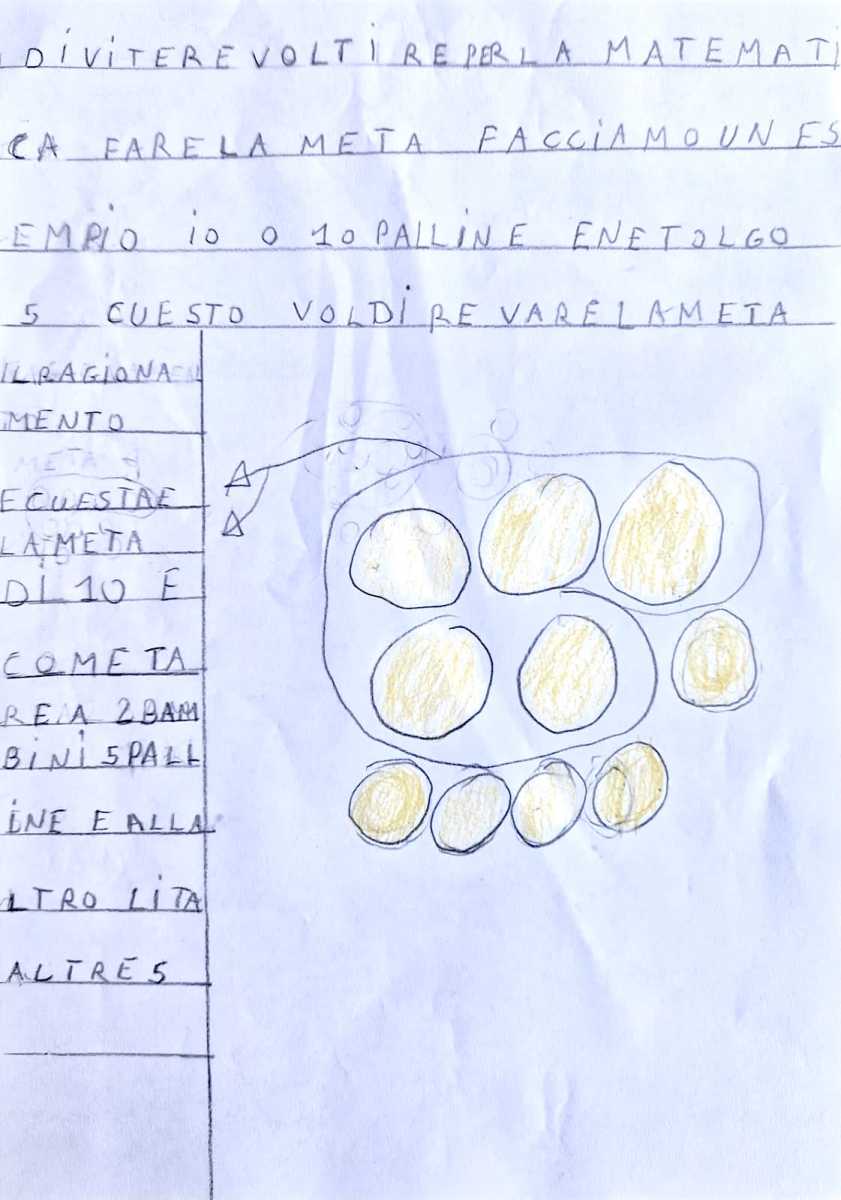 DIVITERE VOLTIRE PER LA MATEMATI
CA FARE LA META FACCIAMO UN ES
EMPIO IO O 10 PALLINE E NE TOLGO
5 CUESTO VOLDIRE VARE LA META
IL RAGIONA
MENTO
E CUESTA E
LA META
DI 10 E
COME TA
RE A 2 BAM
BINI 5 PALL
INE E ALLA
LTRO LI TA
ALTRE 5